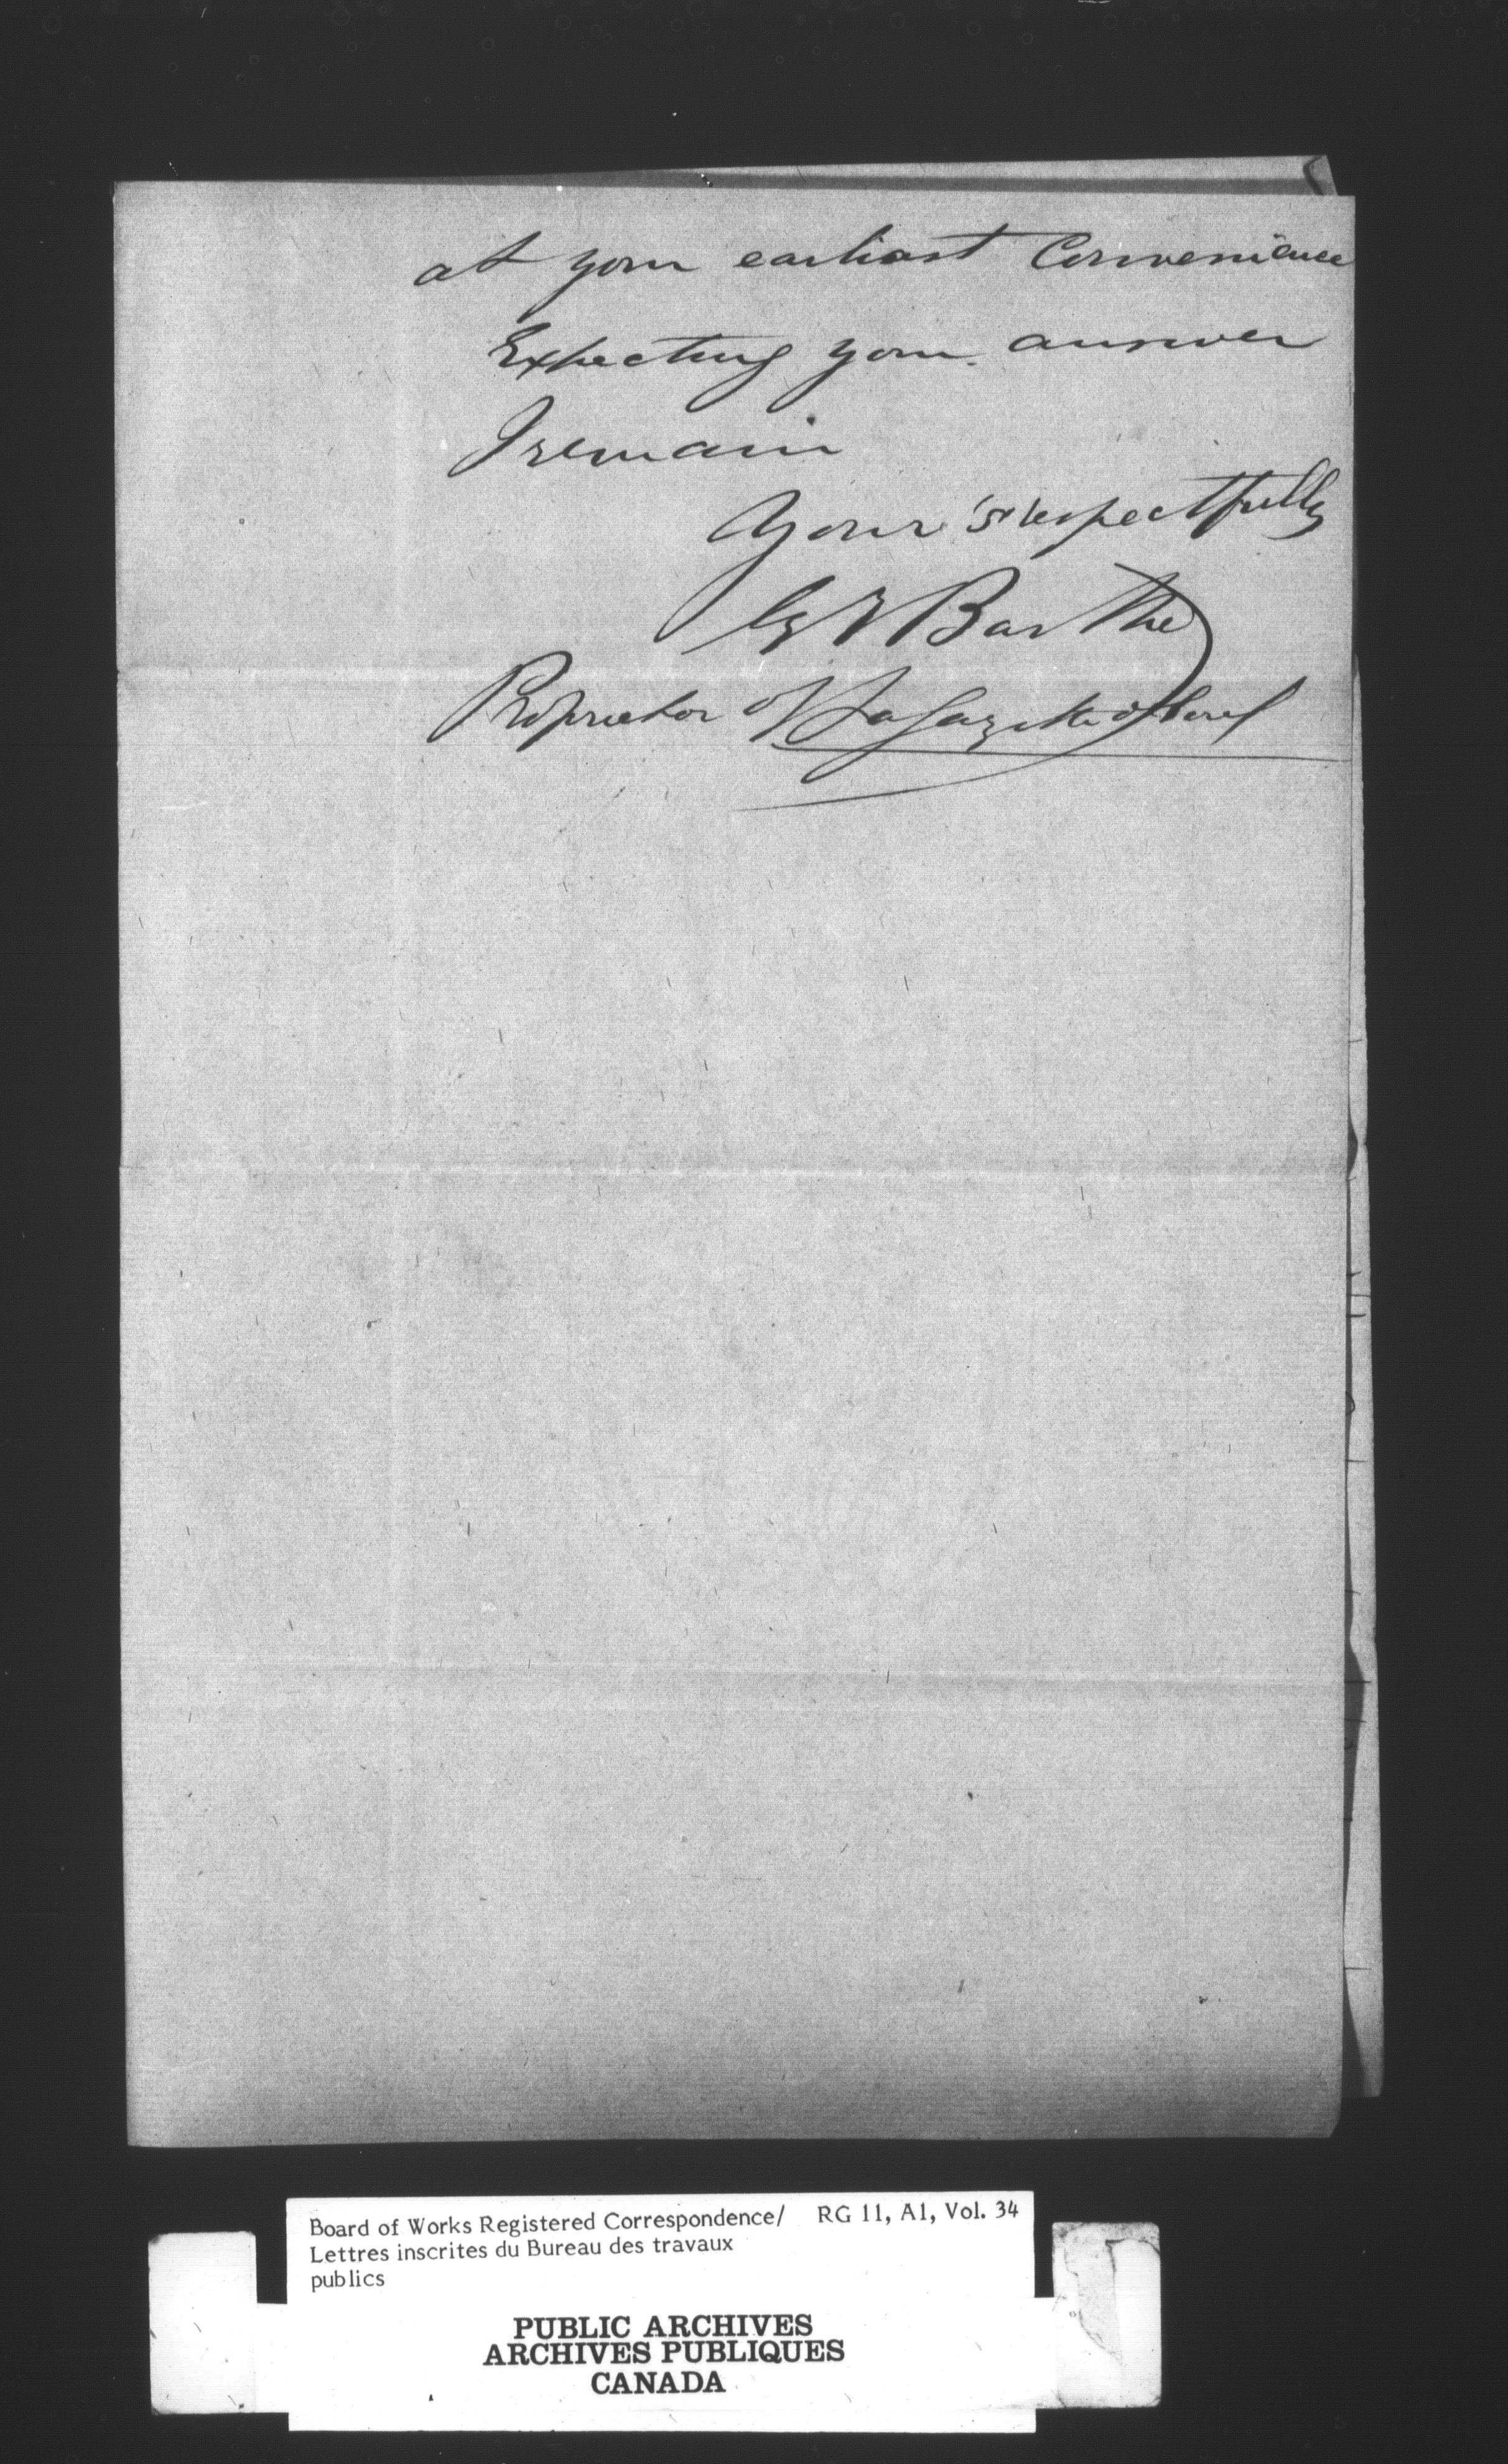 at your earliast Convenience
Expecting your answer
I remain
Your's respectfully
G I Barthe
Proprietor of La Gazette of Sorel
Board of Works Registered Correspondence/ RG 11, A1, Vol. 34
Lettres inscrites du Bureau des travaux
publics
PUBLIC ARCHIVES
ARCHIVES PUBLIQUES
CANADA